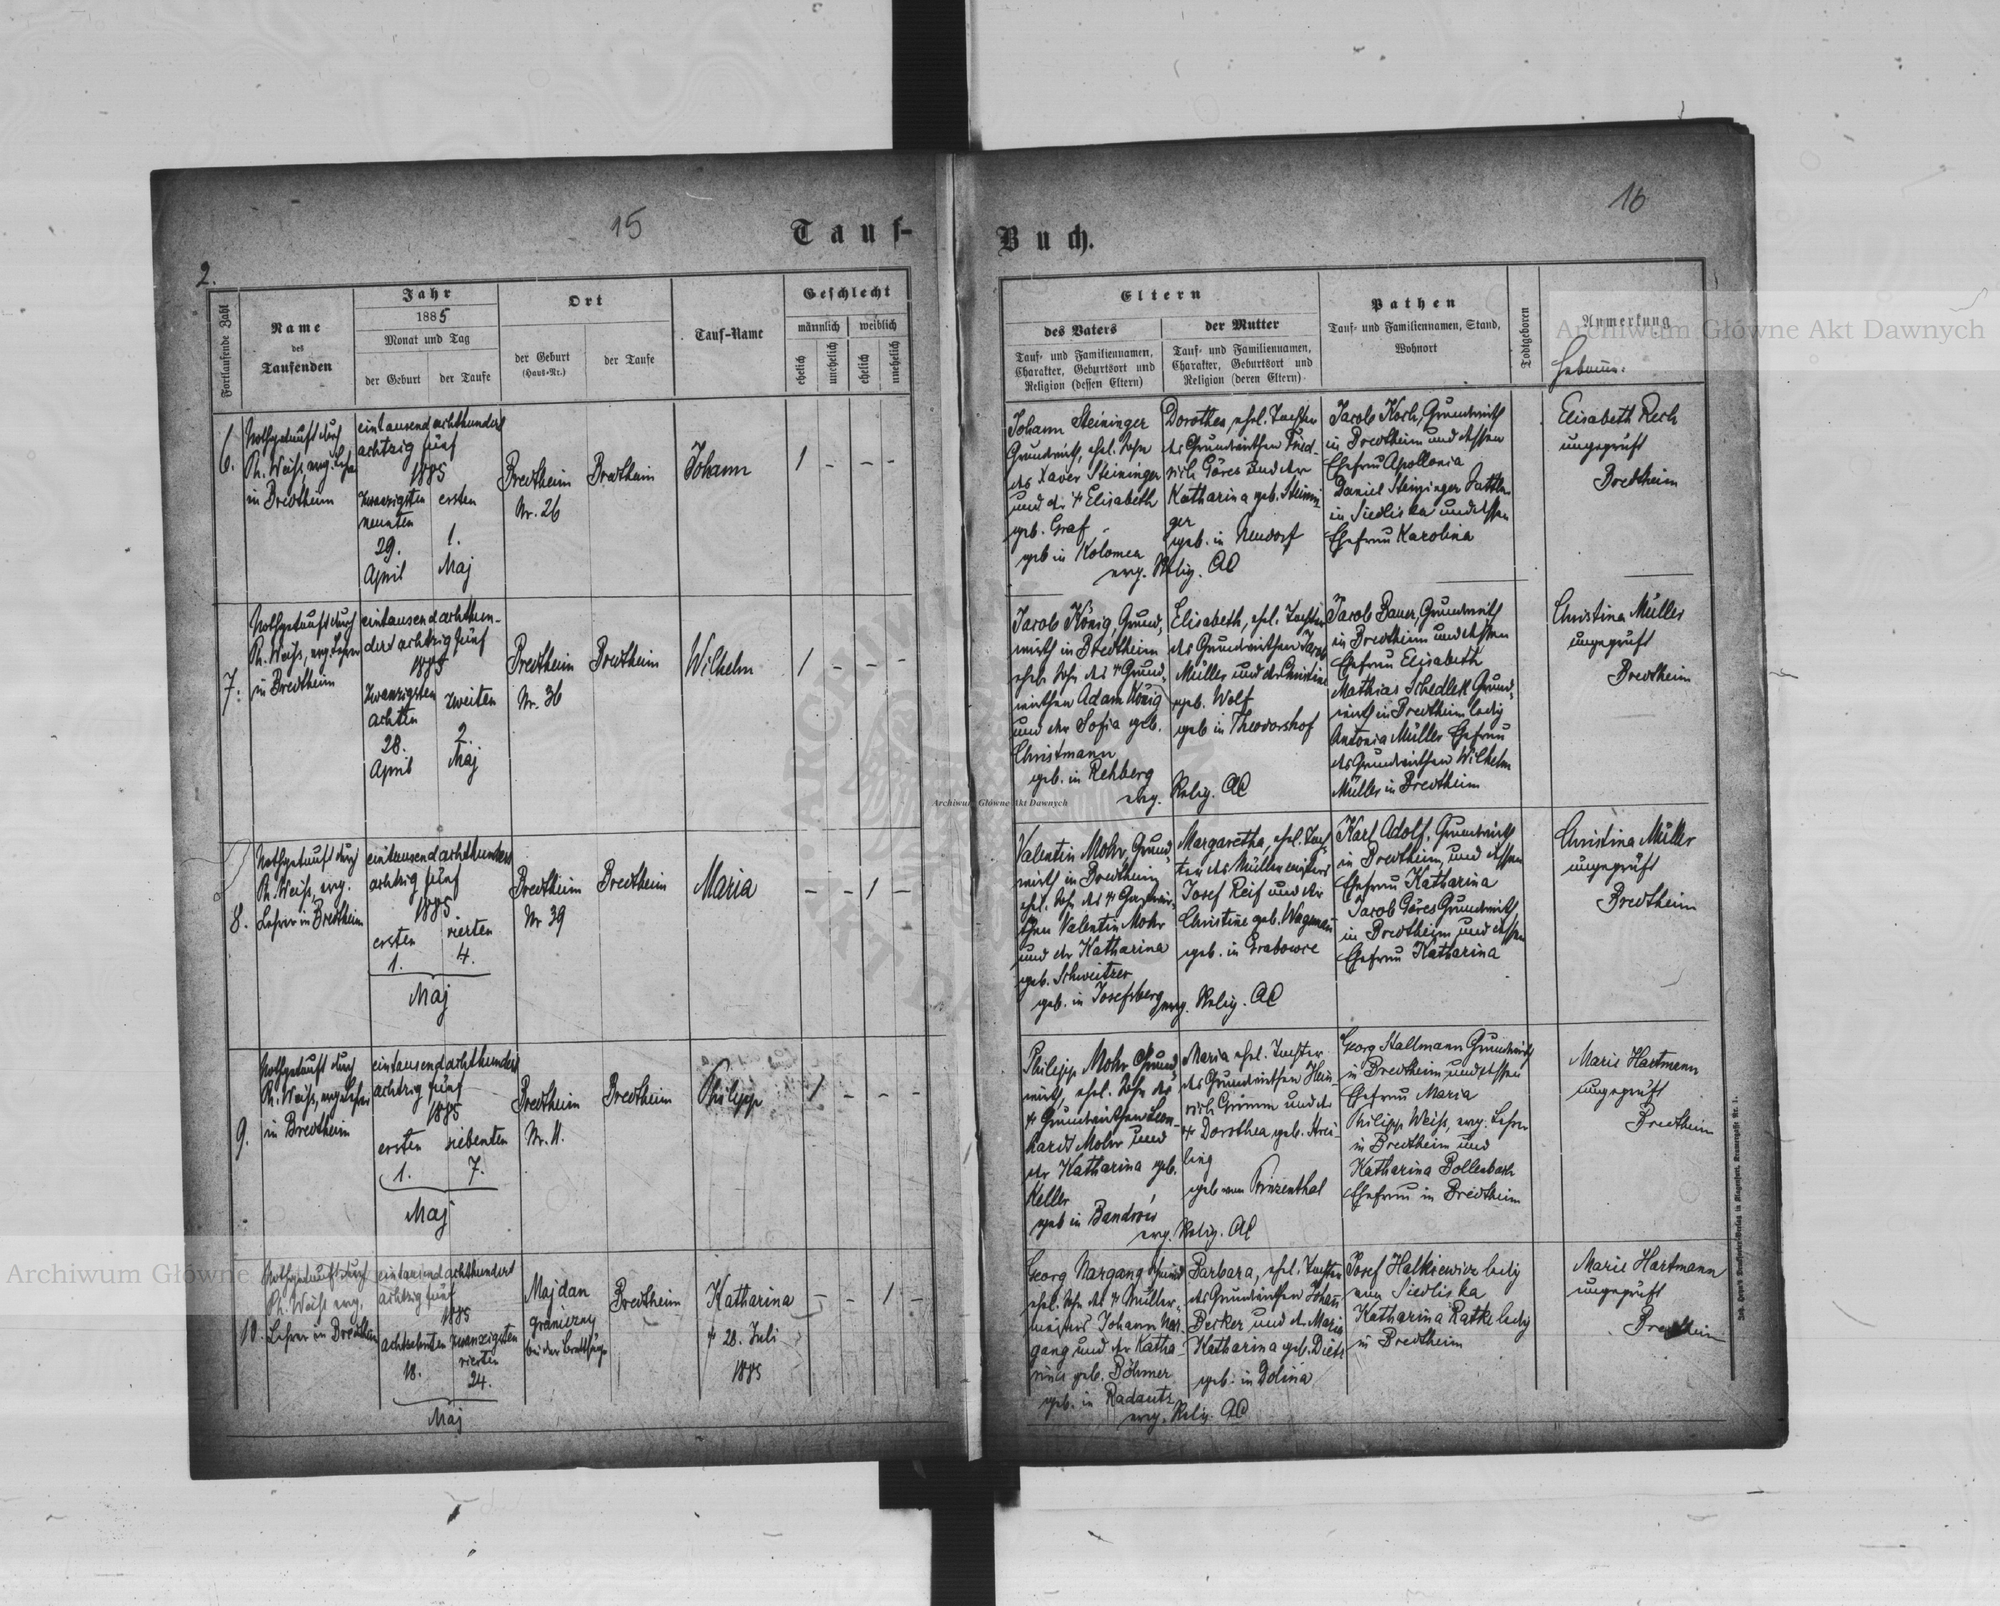 15
Tauf-
2.
Fortlaufende Zahl
Name
des
Taufenden
Jahr
1885
Monat und Tag
der Geburt
der Taufe
Ort
der Geburt
(Haus-Nr.)
der Taufe
Tauf-Name
Geschlecht
männlich
weiblich
ehelich
unehelich
ehelich
unehelich
6.
Nothgetauft durch
Ph. Weiß, evg. Lehrer
in Bredtheim
eintausend achthundert
achtzig fünf
1885
zwanzigsten
neunten
29.
April
ersten
1.
Maj
Bredtheim
Nr. 26
Bredtheim
Johann
1 - - -
7.
Nothgetauft durch
Ph. Weiß, evg. Lehrer
in Bredtheim
eintausend achthun-
dert achtzig fünf
1885
zwanzigsten
achten
28.
April
zweiten
2.
Maj
Bredtheim
Nr. 36
Bredtheim
Wilhelm
1 - - -
8.
Nothgetauft durch
Ph. Weiß, evg.
Lehrer in Bredtheim
eintausend achthundert
achtzig fünf
1885
ersten
1.
vierten
4.
Maj
Bredtheim
Nr 39
Bredtheim
Maria
- - 1 -
9.
Nothgetauft durch
Ph. Weiß, evg. Lehrer
in Bredtheim
eintausend achthundert
achtzig fünf
1885
ersten
1.
siebenten
7.
Maj
Bredtheim
Nr. 11.
Bredtheim
Philipp
1 - - -
10.
Nothgetauft durch
Ph. Weiß evg.
Lehrer in Bredtheim
eintausend achthundert
achtzig fünf
1885
achtzehnten
18.
zwanzigsten
vierten
24.
Maj
Majdan
graniczny
bei der Brettsäge
Bredtheim
Katharina
† 28. Juli
1885
- - 1 -
16
Buch.
Eltern
des Vaters
Tauf- und Familiennamen,
Charakter, Geburtsort und
Religion (dessen Eltern)
der Mutter
Tauf- und Familiennamen,
Charakter, Geburtsort und
Religion (deren Eltern)
Pathen
Tauf- und Familiennamen, Stand,
Wohnort
Todtgeboren
Anmerkung
Hebamme:
Johann Steininger
Grundwirth, ehel. Sohn
des Xaver Steininger
und der † Elisabeth
geb. Graf
geb in Kolomea
Dorothea, ehel. Tochter
des Grundwirthen Fried-
rich Göres und der
Katharina geb. Steinin-
ger
geb. in Neudorf
evg. Relig. AC
Jacob Koch, Grundwirth
in Bredtheim und dessen
Ehefrau Apollonia
Daniel Steininger Sattler
in Siedliska und dessen
Ehefrau Karolina
Elisabeth Rech
ungeprüft
Bredtheim
Jacob König, Grund-
wirth in Bredtheim
ehel. Sohn des † Grund-
wirthen Adam König
und der Sofia geb.
Christmann
geb. in Rehberg
Elisabeth, ehel. Tochter
des Grundwirthen Jacob
Müller und der Christine
geb. Wolf
geb in Theodorshof
evg. Relig. AC
Jacob Bauer, Grundwirth
in Bredtheim und dessen
Ehefrau Elisabeth
Mathias Schedlek Grund-
wirth in Bredtheim ledig
Antonia Müller Ehefrau
des Grundwirthen Wilhelm
Müller in Bredtheim
Christina Müller
ungeprüft
Bredtheim
Valentin Mohr, Grund-
wirth in Bredtheim
ehel. Sohn des † Grundwir-
then Valentin Mohr
und der Katharina
geb. Schweitzer
geb. in Josefsberg
Margaretha, ehel. Toch-
ter des Müllermeisters
Josef Reif und der
Christine geb. Wagman
geb. in Grabowce
evg. Relig. AC
Karl Adolf, Grundwirth
in Bredtheim, und dessen
Ehefrau Katharina
Jacob Göres Grundwirth
in Bredtheim und dessen
Ehefrau Katharina
Christina Müller
ungeprüft
Bredtheim
Philipp Mohr Grund-
wirth, ehel. Sohn des
† Grundwirthen Leon-
hardt Mohr und
der Katharina geb.
Keller
geb in Bandrów
Maria ehel. Tochter
des Grundwirthen Hein-
rich Grimm und der
† Dorothea, geb. Strei-
ling
geb von Prinzenthal
evg. Relig. AC
Georg Hallmann Grundwirth
in Bredtheim und dessen
Ehefrau Maria
Philipp Weiß, evg. Lehrer
in Bredtheim und
Katharina Bollenbach
Ehefrau in Bredtheim
Marie Hartmann
ungeprüft
Bredtheim
Georg Nargang Grund
ehel. Sohn des † Müller-
meisters Johann Nar-
gang und der Katha-
rina geb. Böhmer
geb. in Radautz
Barbara, ehel. Tochter
des Grundwirthen Johann
Becker und der Maria
Katharina geb. Dietz
geb. in Dolina
evg. Relig. AC
Josef Halkiewicz ledig
von Siedliska
Katharina Ratke ledig
in Bredtheim
Marie Hartmann
ungeprüft
Bredtheim
Archiwum Główne Akt Dawnych
Archiwum Główne Akt Dawnych
Archiwum Główne